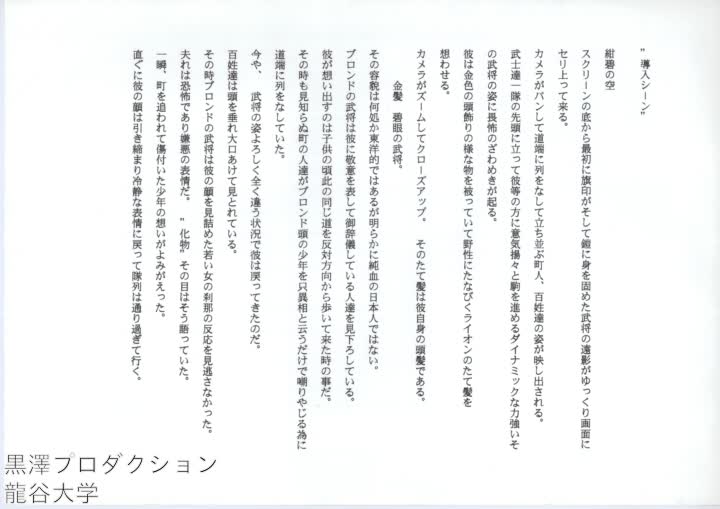 ”導入シーン”
紺碧の空
スクリーンの底から最初に旗印がそして鎧に身を固めた武将の遠影がゆっくり画面に
セリ上って来る。
カメラがパンして道端に列をなして立ち並ぶ町人、百姓達の姿が映し出される。
武士達一隊の先頭に立って彼等の方に意気揚々と駒を進めるダイナミックな力強いそ
の武将の姿に畏怖のざわめきが起る。
彼は金色の頭飾りの様な物を被っていて野性にたなびくライオンのたて髪を
想わせる。
カメラがズームしてクローズアップ。　そのたて髪は彼自身の頭髪である。
金髪　碧眼の武将。
その容貌は何処か東洋的ではあるが明らかに純血の日本人ではない。
ブロンドの武将は彼に敬意を表して御辞儀している人達を見下ろしている。
彼が想い出すのは子供の頃此の同じ道を反対方向から歩いて来た時の事だ。
その時も見知らぬ町の人達がブロンド頭の少年を只異相と云うだけで嘲りやじる為に
道端に列をなしていた。
今や、　武将の姿よろしく全く違う状況で彼は戻ってきたのだ。
百姓達は頭を垂れ大口あけて見とれている。
その時ブロンドの武将は彼の顔を見詰めた若い女の刹那の反応を見逃さなかった。
夫れは恐怖であり嫌悪の表情だ。　”化物”その目はそう語っていた。
一瞬、町を追われて傷付いた少年の想いがよみがえった。
直ぐに彼の顔は引き締まり冷静な表情に戻って隊列は通り過ぎて行く。
黒澤プロダクション
龍谷大学